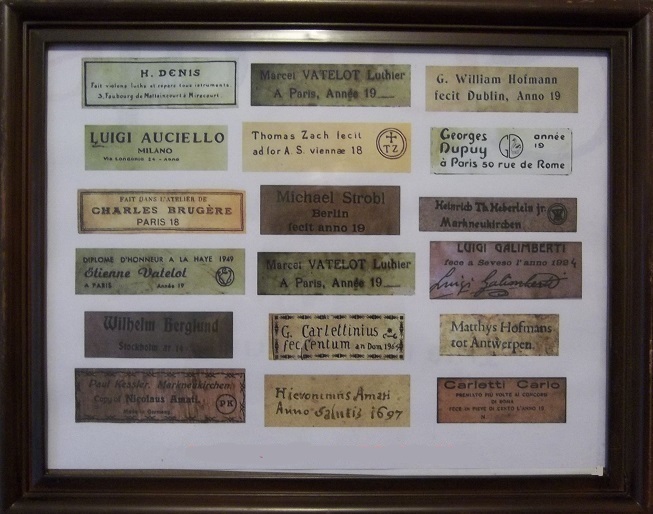 H. DENIS
Fait violons luths et repare tous instruments
3, Faubourg de Mattaincourt à Mirecourt.
Marcel VATELOT Luthier
A Paris, Année 19
G. William Hofmann
fecit Dublin, Anno 19
LUIGI AUCIELLO
MILANO
Via Londonio 24 - Anno
Thomas Zach fecit
ad for A. S. viennæ 18
TZ
Georges
Dupuy
année
19
à Paris 50 rue de Rome
FAIT DANS L'ATELIER DE
CHARLES BRUGÈRE
PARIS 18
Michael Strobl
Berlin
fecit anno 19
Heinrich Th. Heberlein jr.
Markneukirchen
LUIGI GALIMBERTI
fece a Seveso l'anno 1924
Luigi Galimberti
DIPLOME D'HONNEUR A LA HAYE 1949
Étienne Vatelot
A PARIS Année 19
Marcel VATELOT Luthier
A Paris, Année 19
Wilhelm Berglund
Stockholm
G. Carlettinius
fec. Centum an Dom. 196
Matthys Hofmans
tot Antwerpen
Paul Kessler, Markneukirchen
Copy of Nicolaus Amati.
Made in Germany
PK
Hieronimus Amati
Anno Salutis 1697
Carletti Carlo
PREMIATO PIÙ VOLTE AI CONCORSI
DI ROMA
FECE IN PIEVE DI CENTO L'ANNO 19
N.